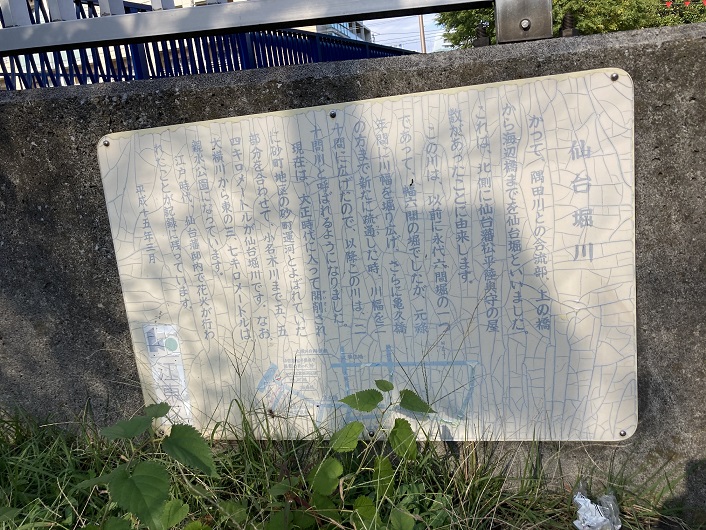 仙台堀川
かつて、隅田川との合流部、上の橋
から海辺橋までを仙台堀といいました。
これは、北側に仙台藩松平陸奥守の屋
敷があったことに由来します。
この川は、以前に永代六間堀の一つ
であって、幅六間の堀でしたが、元禄
年間に川幅を堀り広げ、さらに亀久橋
の方まで新たに疏通した時、川幅を二
十間に広げたので、以降この川は、二
十間川と呼ばれるようになりました。
現在は、大正時代に入って開削され
た砂町地区の砂町運河とよばれていた
部分を合わせて、小名木川まで五・五
四キロメートルが仙台堀川です。なお、
大横川から東の三・七キロメートルは、
親水公園になっています。
江戸時代、仙台藩邸内で花火が行わ
れたことが記録に残っています。
平成十五年三月
江東